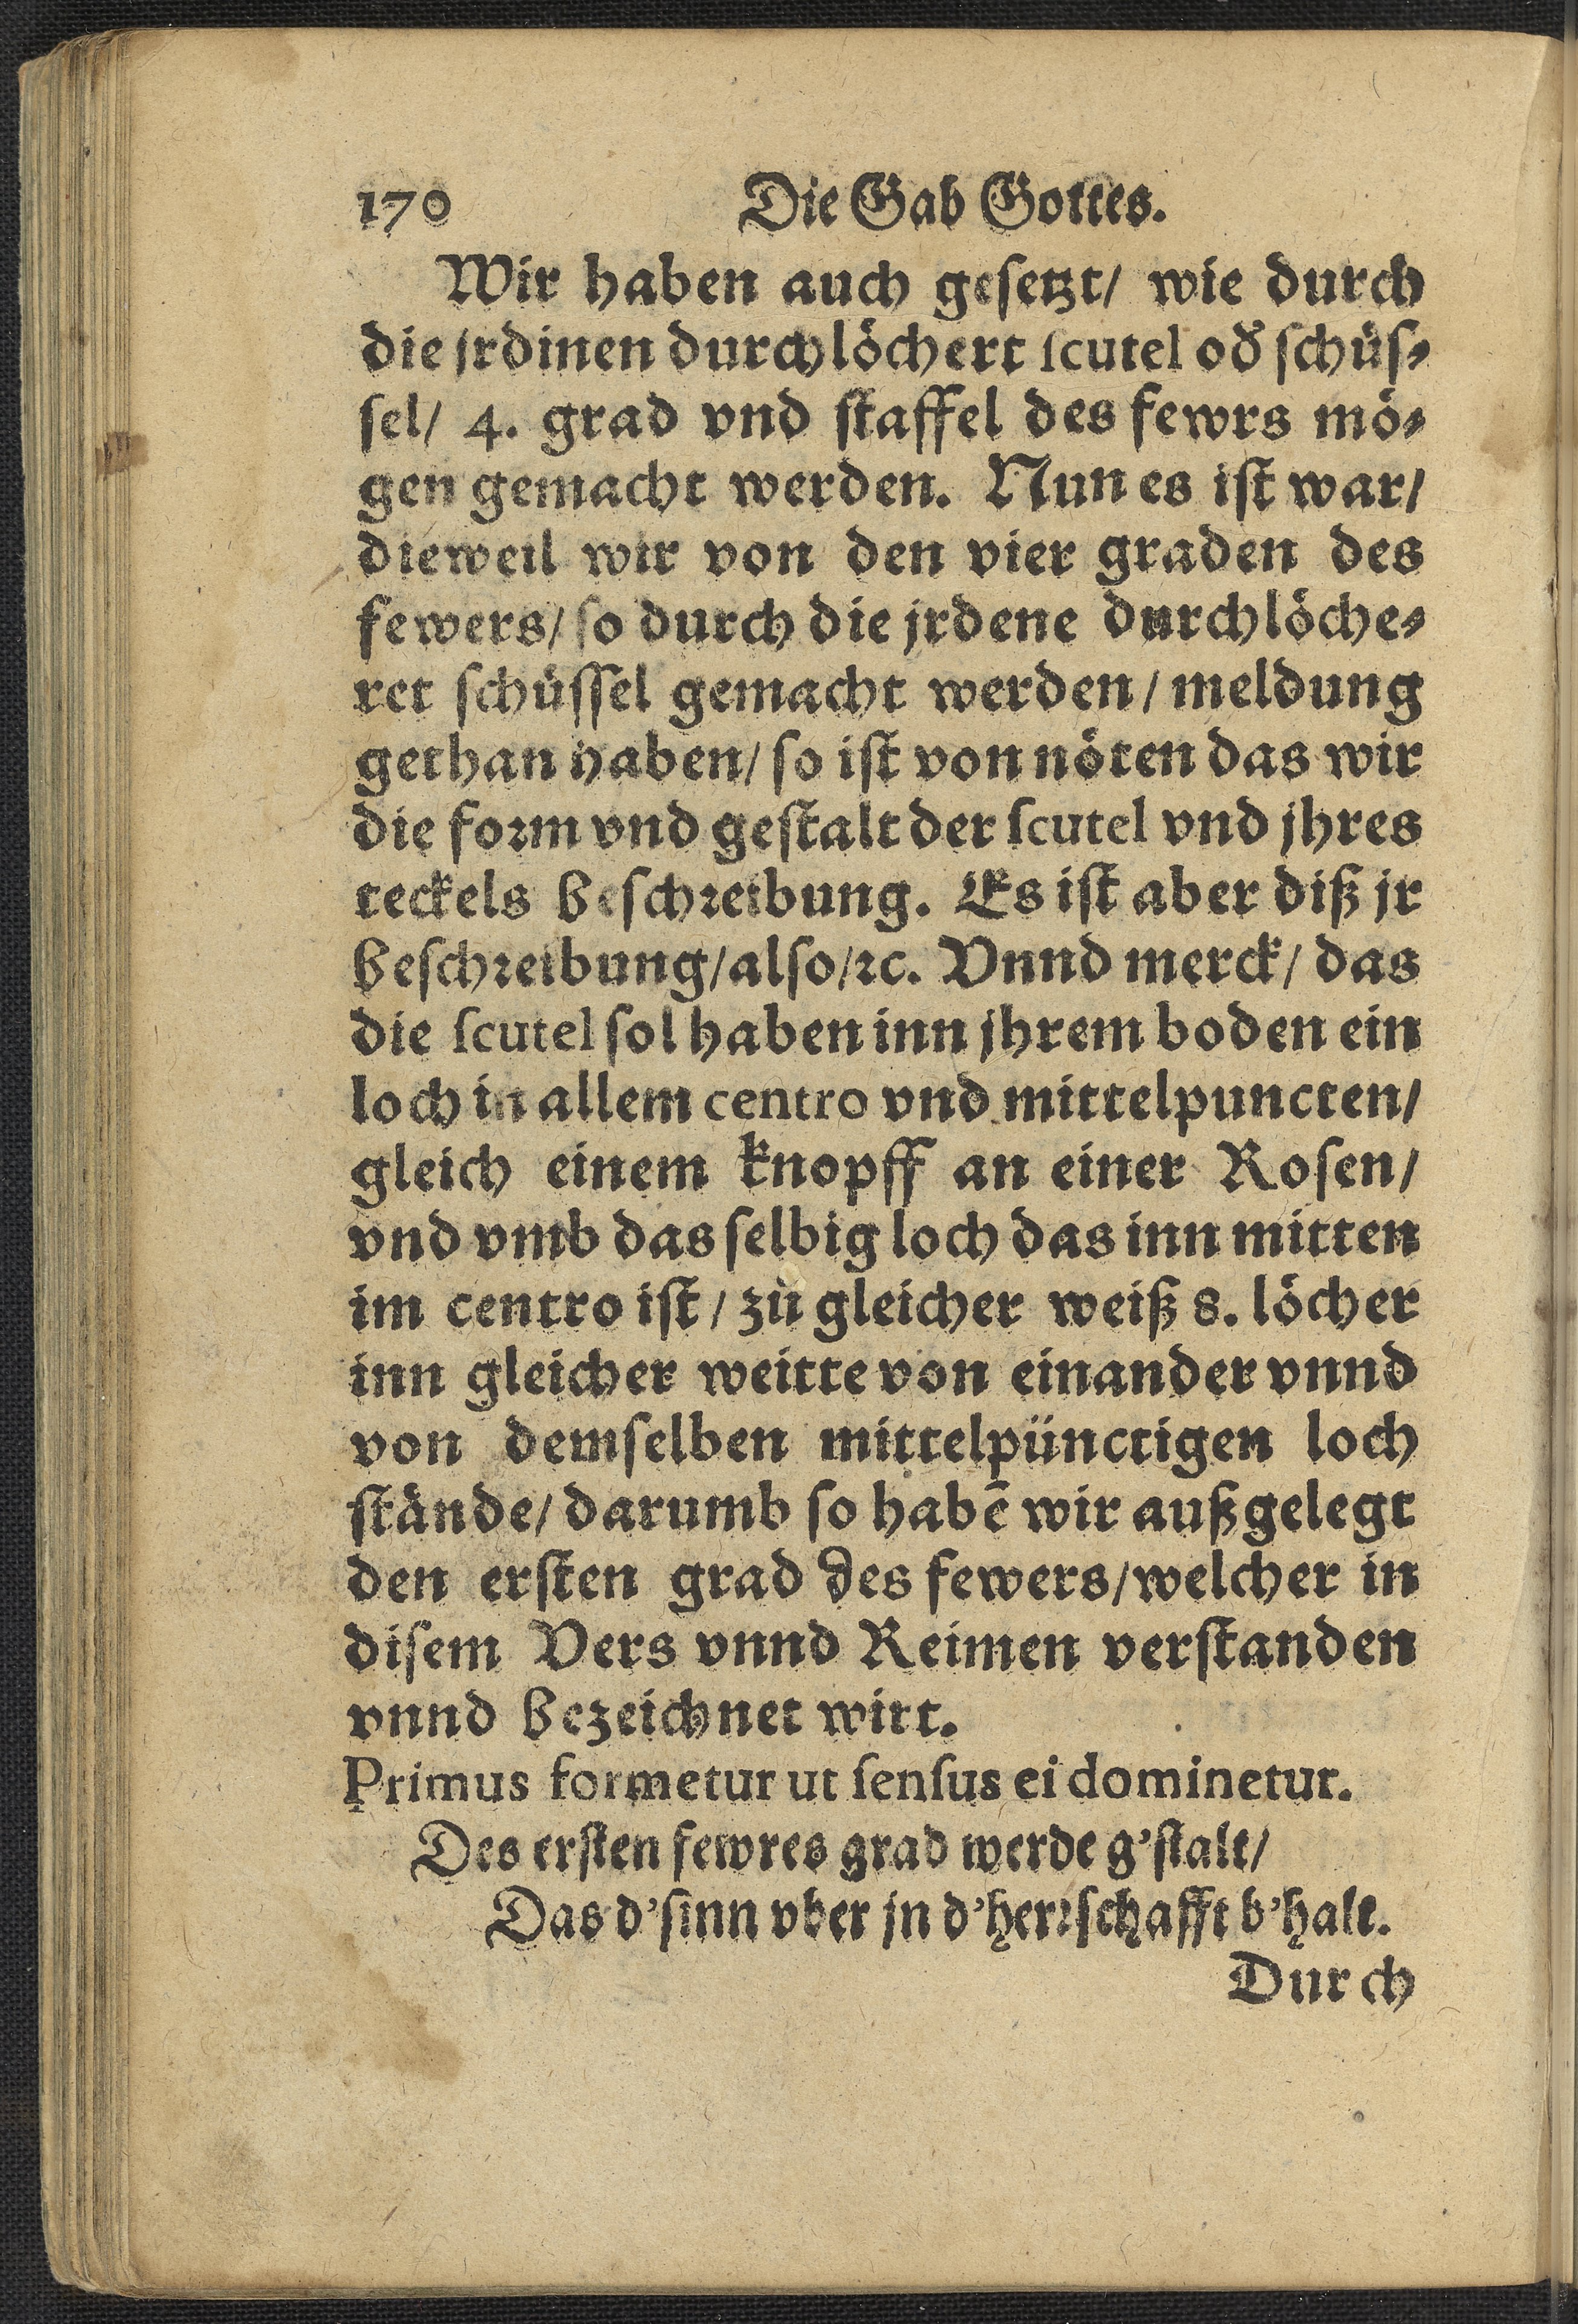 170 Die Gab Gottes.
Wir haben auch gesetzt/ wie durch
die jrdinen durchlöchert scutel od̕ schüs⸗
sel/ 4. grad vnd staffel des fewrs mö⸗
gen gemacht werden. Nun es ist war/
dieweil wir von den vier graden des
fewers/ so durch die jrdene durchlöche⸗
ret schüssel gemacht werden/ meldung
gethan haben/ so ist von nöten das wir
die form vnd gestalt der scutel vnd jhres
teckels beschreibung. Es ist aber diß jr
beschreibung/also/ꝛc. Vnnd merck/ das
die scutel sol haben inn jhrem boden ein
loch in allem centro vnd mittelpuncten/
gleich einem knopff an einer Rosen/
vnd vmb das selbig loch das inn mitten
im centro ist/ zů gleicher weiß 8. löcher
inn gleicher weitte von einander vnnd
von demselben mittelpünctigen loch
stände/ darumb so habē wir außgelegt
den ersten grad des fewers/welcher in
disem Vers vnnd Reimen verstanden
vnnd bezeichnet wirt.
Primus formetur ut sensus ei dominetur.
Des ersten fewres grad werde g'stalt/
Das d'sinn vber jn d'herrschafft b'halt.
Durch